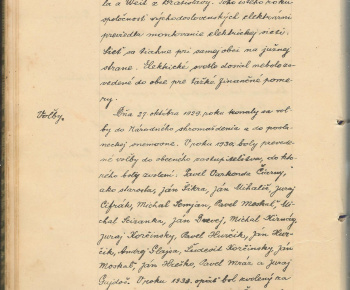 la a Weil z Bratislavy. Toho istého roku
spoločnosť východoslovenských elektrární
previedla montovanie elektrickej siete.
Sieť sa tiahne pri samej obci na južnej
strane. Elektrické svetlo dosiaľ nebolo za-
vedené do obce pre ťažké finančné pome-
ry.
Voľby.
Dňa 27 októbra 1929 roku konaly sa voľ-
by do Národného shromaždenia a do posla-
neckej snemovne. V roku 1930, boly preve-
dené voľby do obecného zastupiteľstva, do kto-
rého boly zvolení: Pavel Varkonda Čierny,
ako starosta, Ján Fitra, Ján Mihalič, Juraj
Cifrák, Michal Semjan, Pavel Moskaľ, Mi-
chal Sciranka, Ján Michal
Juraj Korčinsky, Pavel Hurčík, Ján Hur-
čík, Andrej Ľudevit Korčinsky, Ján
Moskaľ, Ján Hričko, Pavel Mráz a Juraj
V roku 1930. opäť bol zvolený za